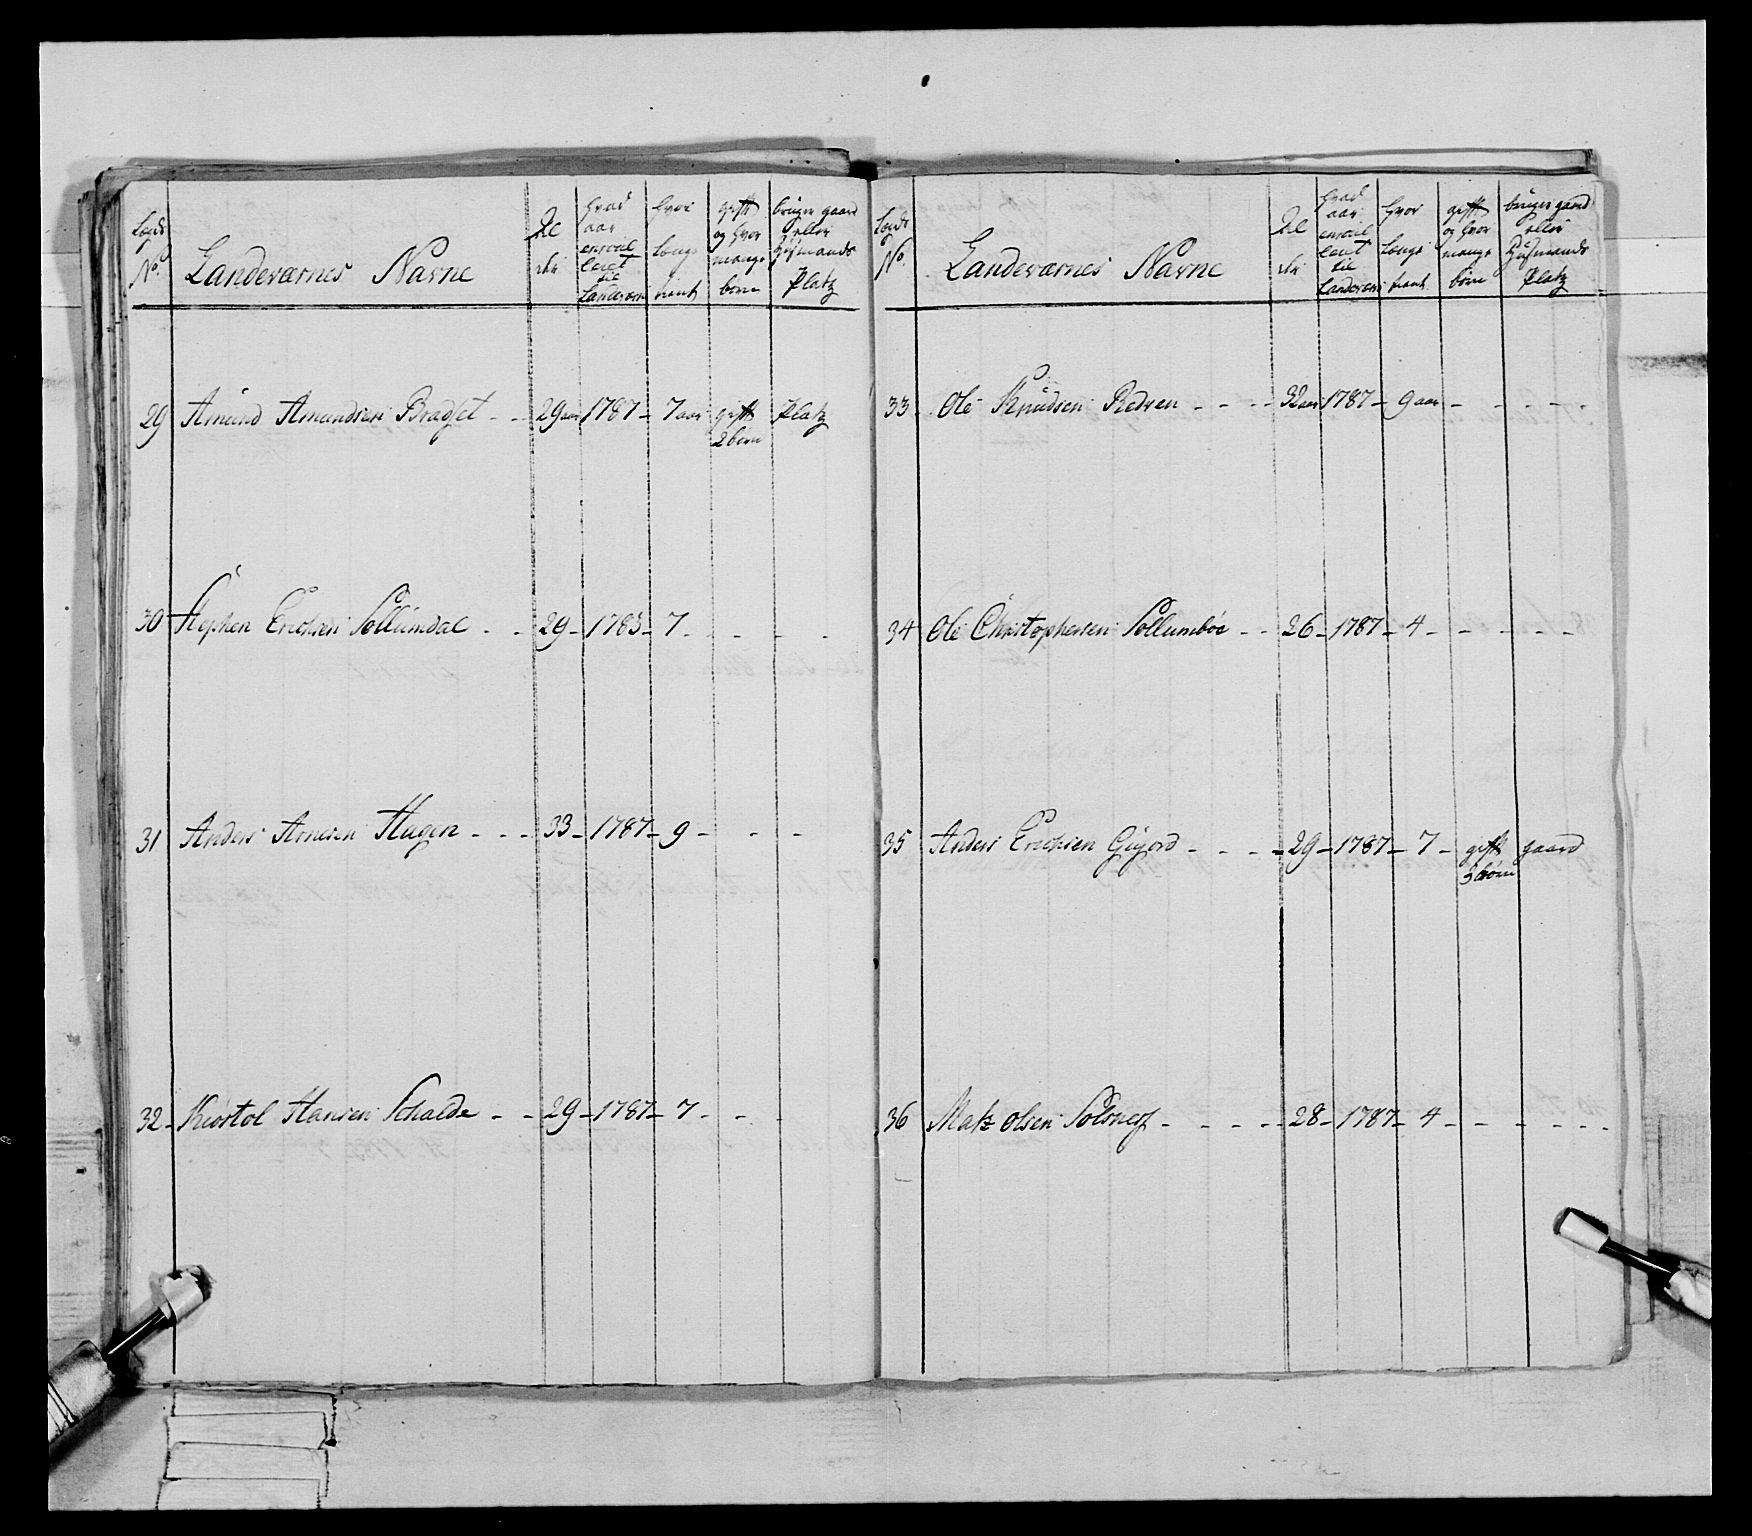 Lægds No. Landeværnes Navne Al der hvad aar enroul leret til Landeværn hvor længe tient gift og hvor mange børn bruger gaard eller Huusmands Platz
29 Amund Amundsen Bradset - - 29 aar 1787 - 7 aar gift 2 børn Platz
30 Stephen Erichsen Sollumdal - - 29 - 1783 - 7 - - - -
31 Anders Arnesen Hagen - - - 33 - 1787 - 9 - - -
32 - Kiørstol Hansen Schalde - - 29 - 1787 - 7 - - -
Lægds No. Landeværnes Navne Al der hvad aar enroul leret til Landeværn hvor længe tient gift og hvor mange børn bruger gaard eller Huusmands Platz
33 Ole Knudsen Redven - - - - 32 aar 1787 - 9 aar - - - -
34 Ole Christophersen Sollumboe - - 26 - 1787 - 4 - - - - -
35 Anders Erichsen Giyord - - - - 29 - 1787 - 7 - gift 3 børn gaard
36 Matz Olsen Solsnes - - - - - 28 - 1787 - 4 - - - - - -